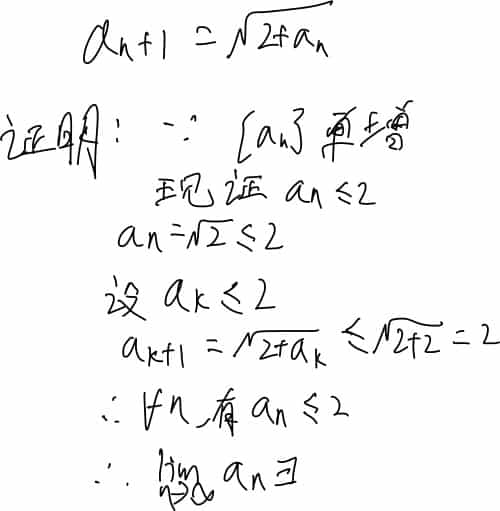 aₙ₊₁ = √(2+aₙ)
证明: ∵ {aₙ} 单增
现证 aₙ ≤ 2
aₙ = √2 ≤ 2
设 aₖ ≤ 2
aₖ₊₁ = √(2+aₖ) ≤ √(2+2) = 2
∴ ∀n, 有 aₙ ≤ 2
∴ lim n→∞ aₙ ∃